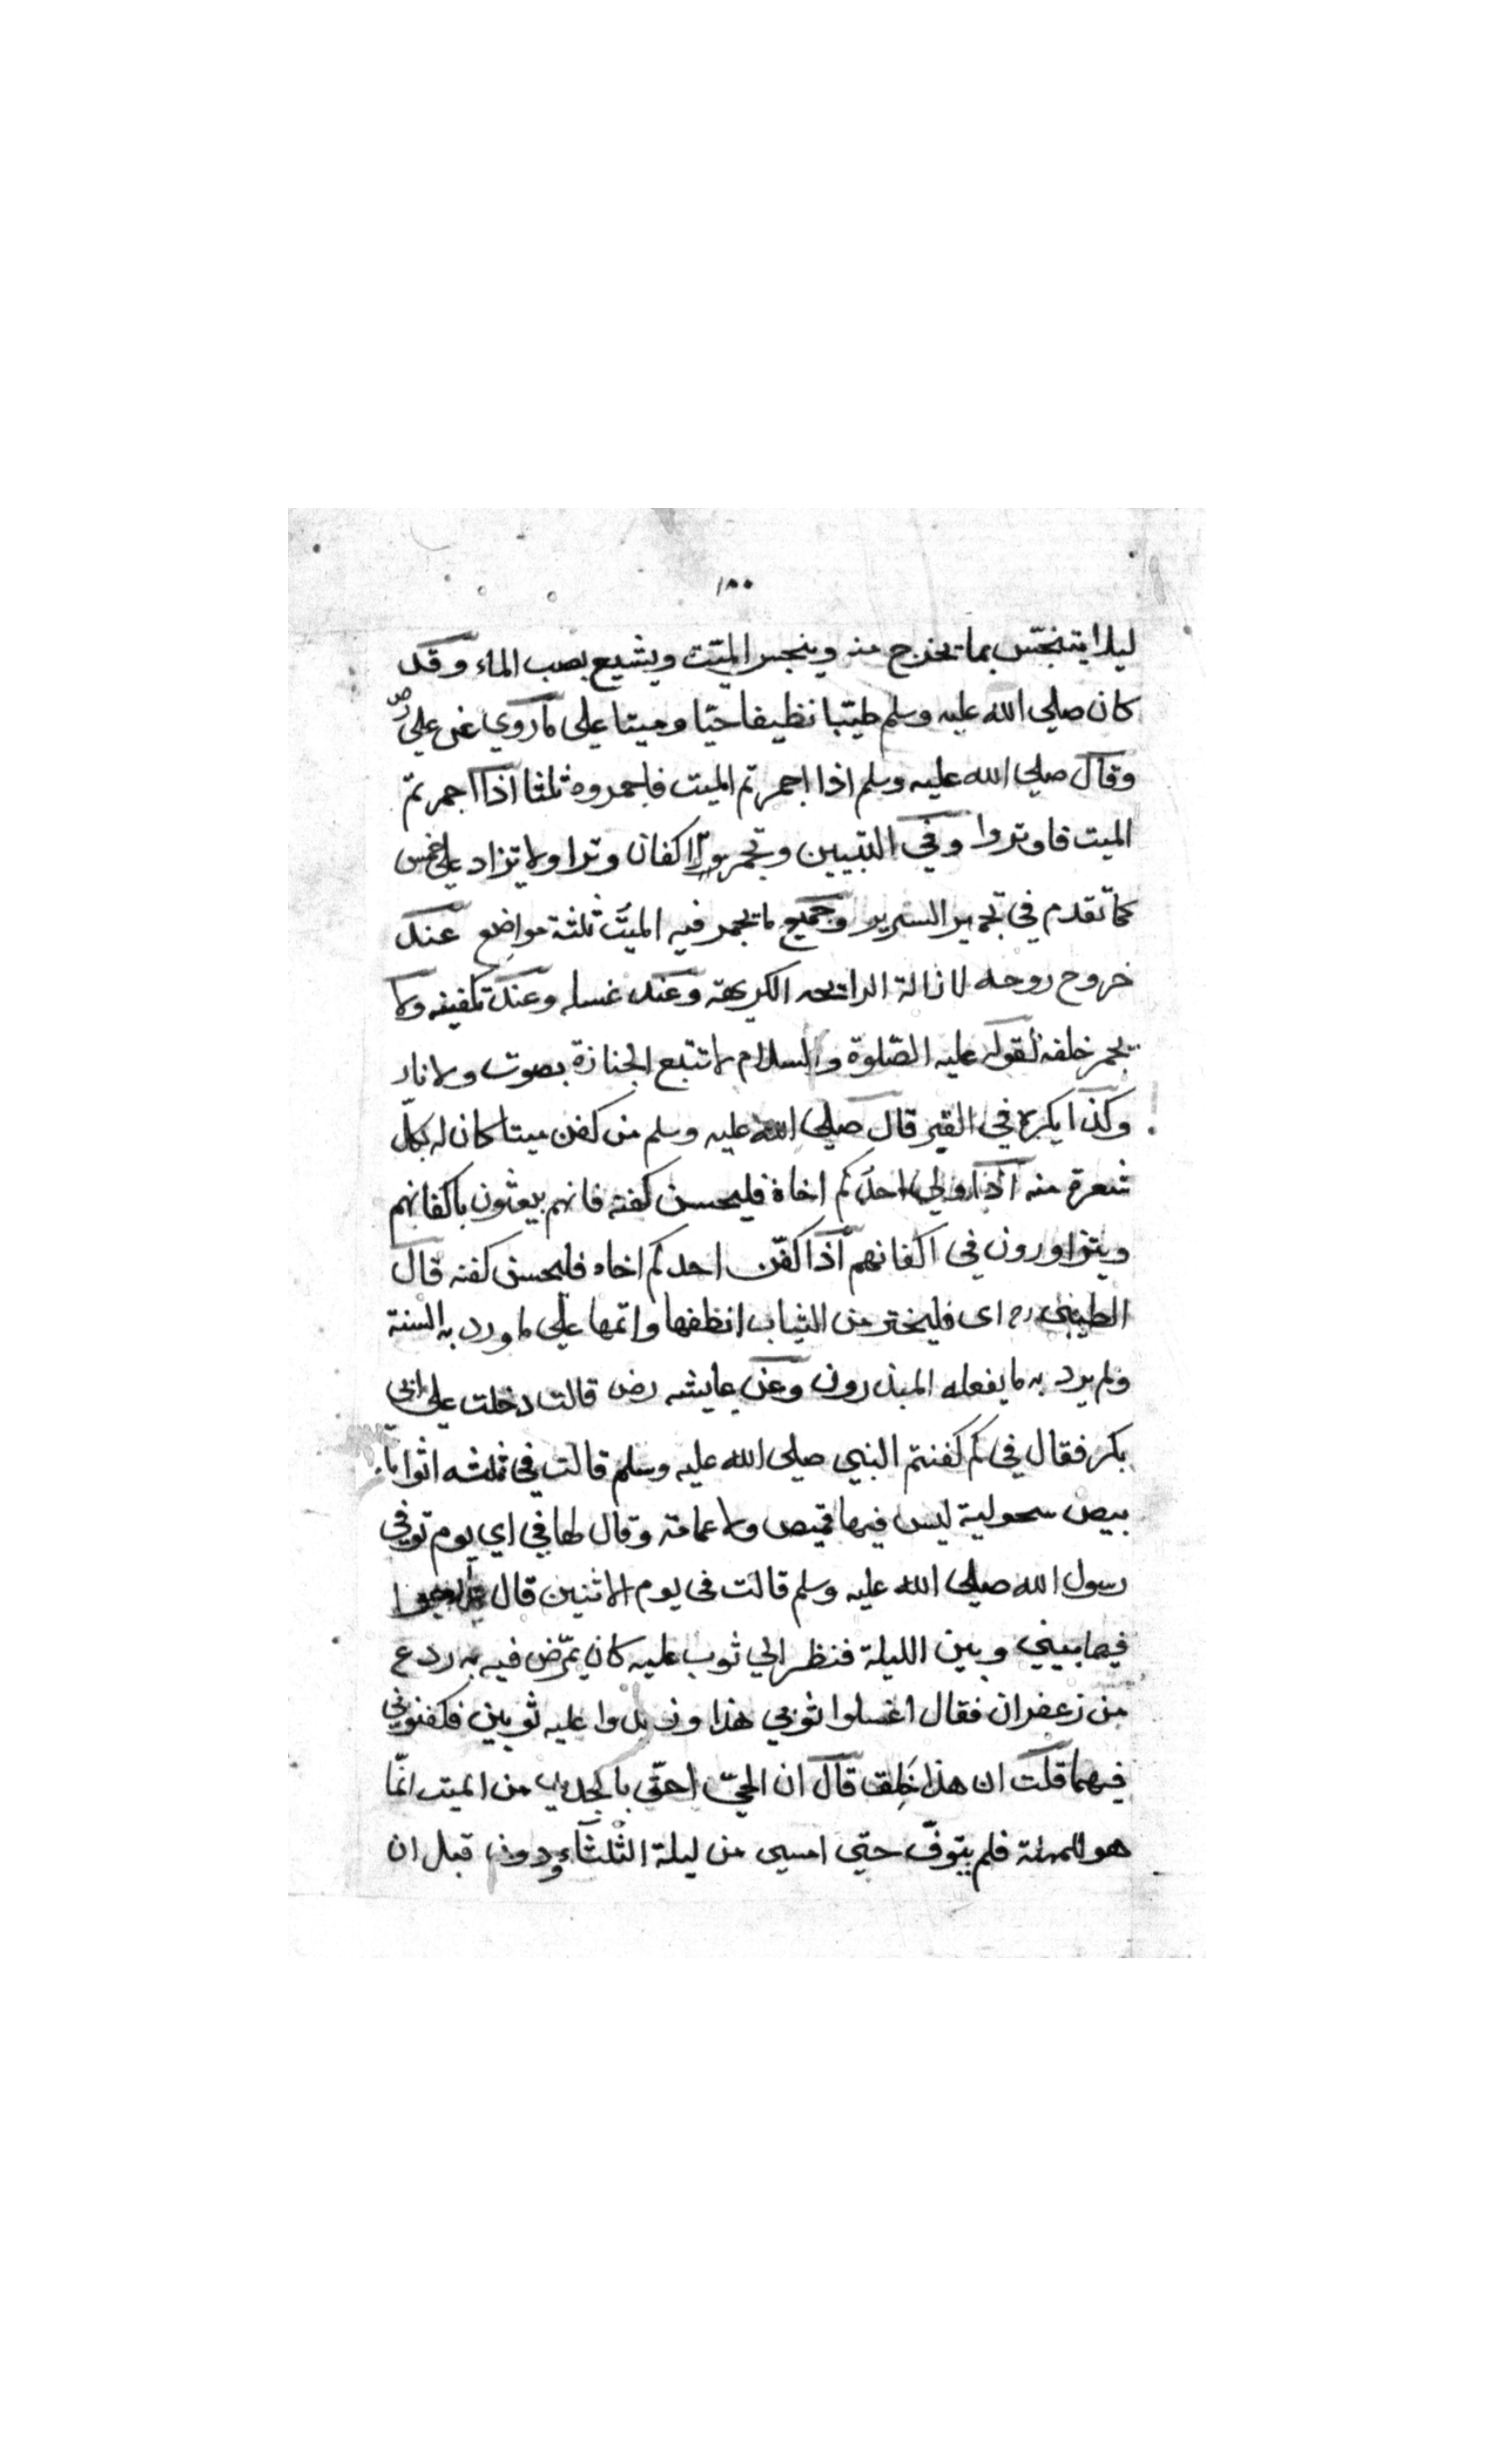 ١٨٥
ليلا يتنجّس بما يخرج منه وينجس الميّت ويشيع بصب الماء وقد
كان صلي الله عليه وسلم طيّبا نظيفا حيّا وميتا علي ما روي عن علي رض
وقال صلي الله عليه وسلم اذا اجمرتم الميت فاجمروه ثلثا اذا اجمرتم
الميت فاوتروا وفي التبيين وتجمر الاكفان وترا ولا يزاد علي خمس
كما تقدم في تجمير السرير وجميع ما يجمر فيه الميّت ثلثة مواضع عند
خروج روحه لازالة الرايحه الكريهة وعند غسله وعند تكفينه ولا
يجمر خلفه لقوله عليه الصّلوة والسلام لا تتبع الجنازة بصوت ولا نار
وكذا يكره في القبر قال صلي الله عليه وسلم من كفن ميتا كان له بكلّ
شعرة منه اذا ولي احدكم اخاه فليحسن كفنه فانهم يبعثون باكفانهم
ويتزاورون في اكفانهم اذا كفّن احدكم اخاه فليحسن كفنه قال
الطيبي رح اي فليختر من الثياب انظفها واتمها علي ما ورد به السنة
ولم يرد به ما يفعله المبذرون وعن عايشه رض قالت دخلت علي ابي
بكر فقال في كم كفنتم النبي صلي الله عليه وسلم قالت في ثلثه اثوابا
بيض سحولية ليس فيها قميص ولا عمامة وقال لها في اي يوم توفي
رسول الله صلي الله عليه وسلم قالت في يوم الاثنين قال ارجوا
فيما بيني وبين الليلة فنظر الي ثوب عليه كان يمرّض فيه به ردع
من زعفران فقال اغسلوا ثوبي هذا وزيدوا عليه ثوبين فكفنوني
فيهما قلت ان هذا خَلِق قال ان الحيّ احق بالجديد من الميت انّما
هو للمهلة فلم يتوفّ حتي امسي من ليلة الثلثاء ودفن قبل ان